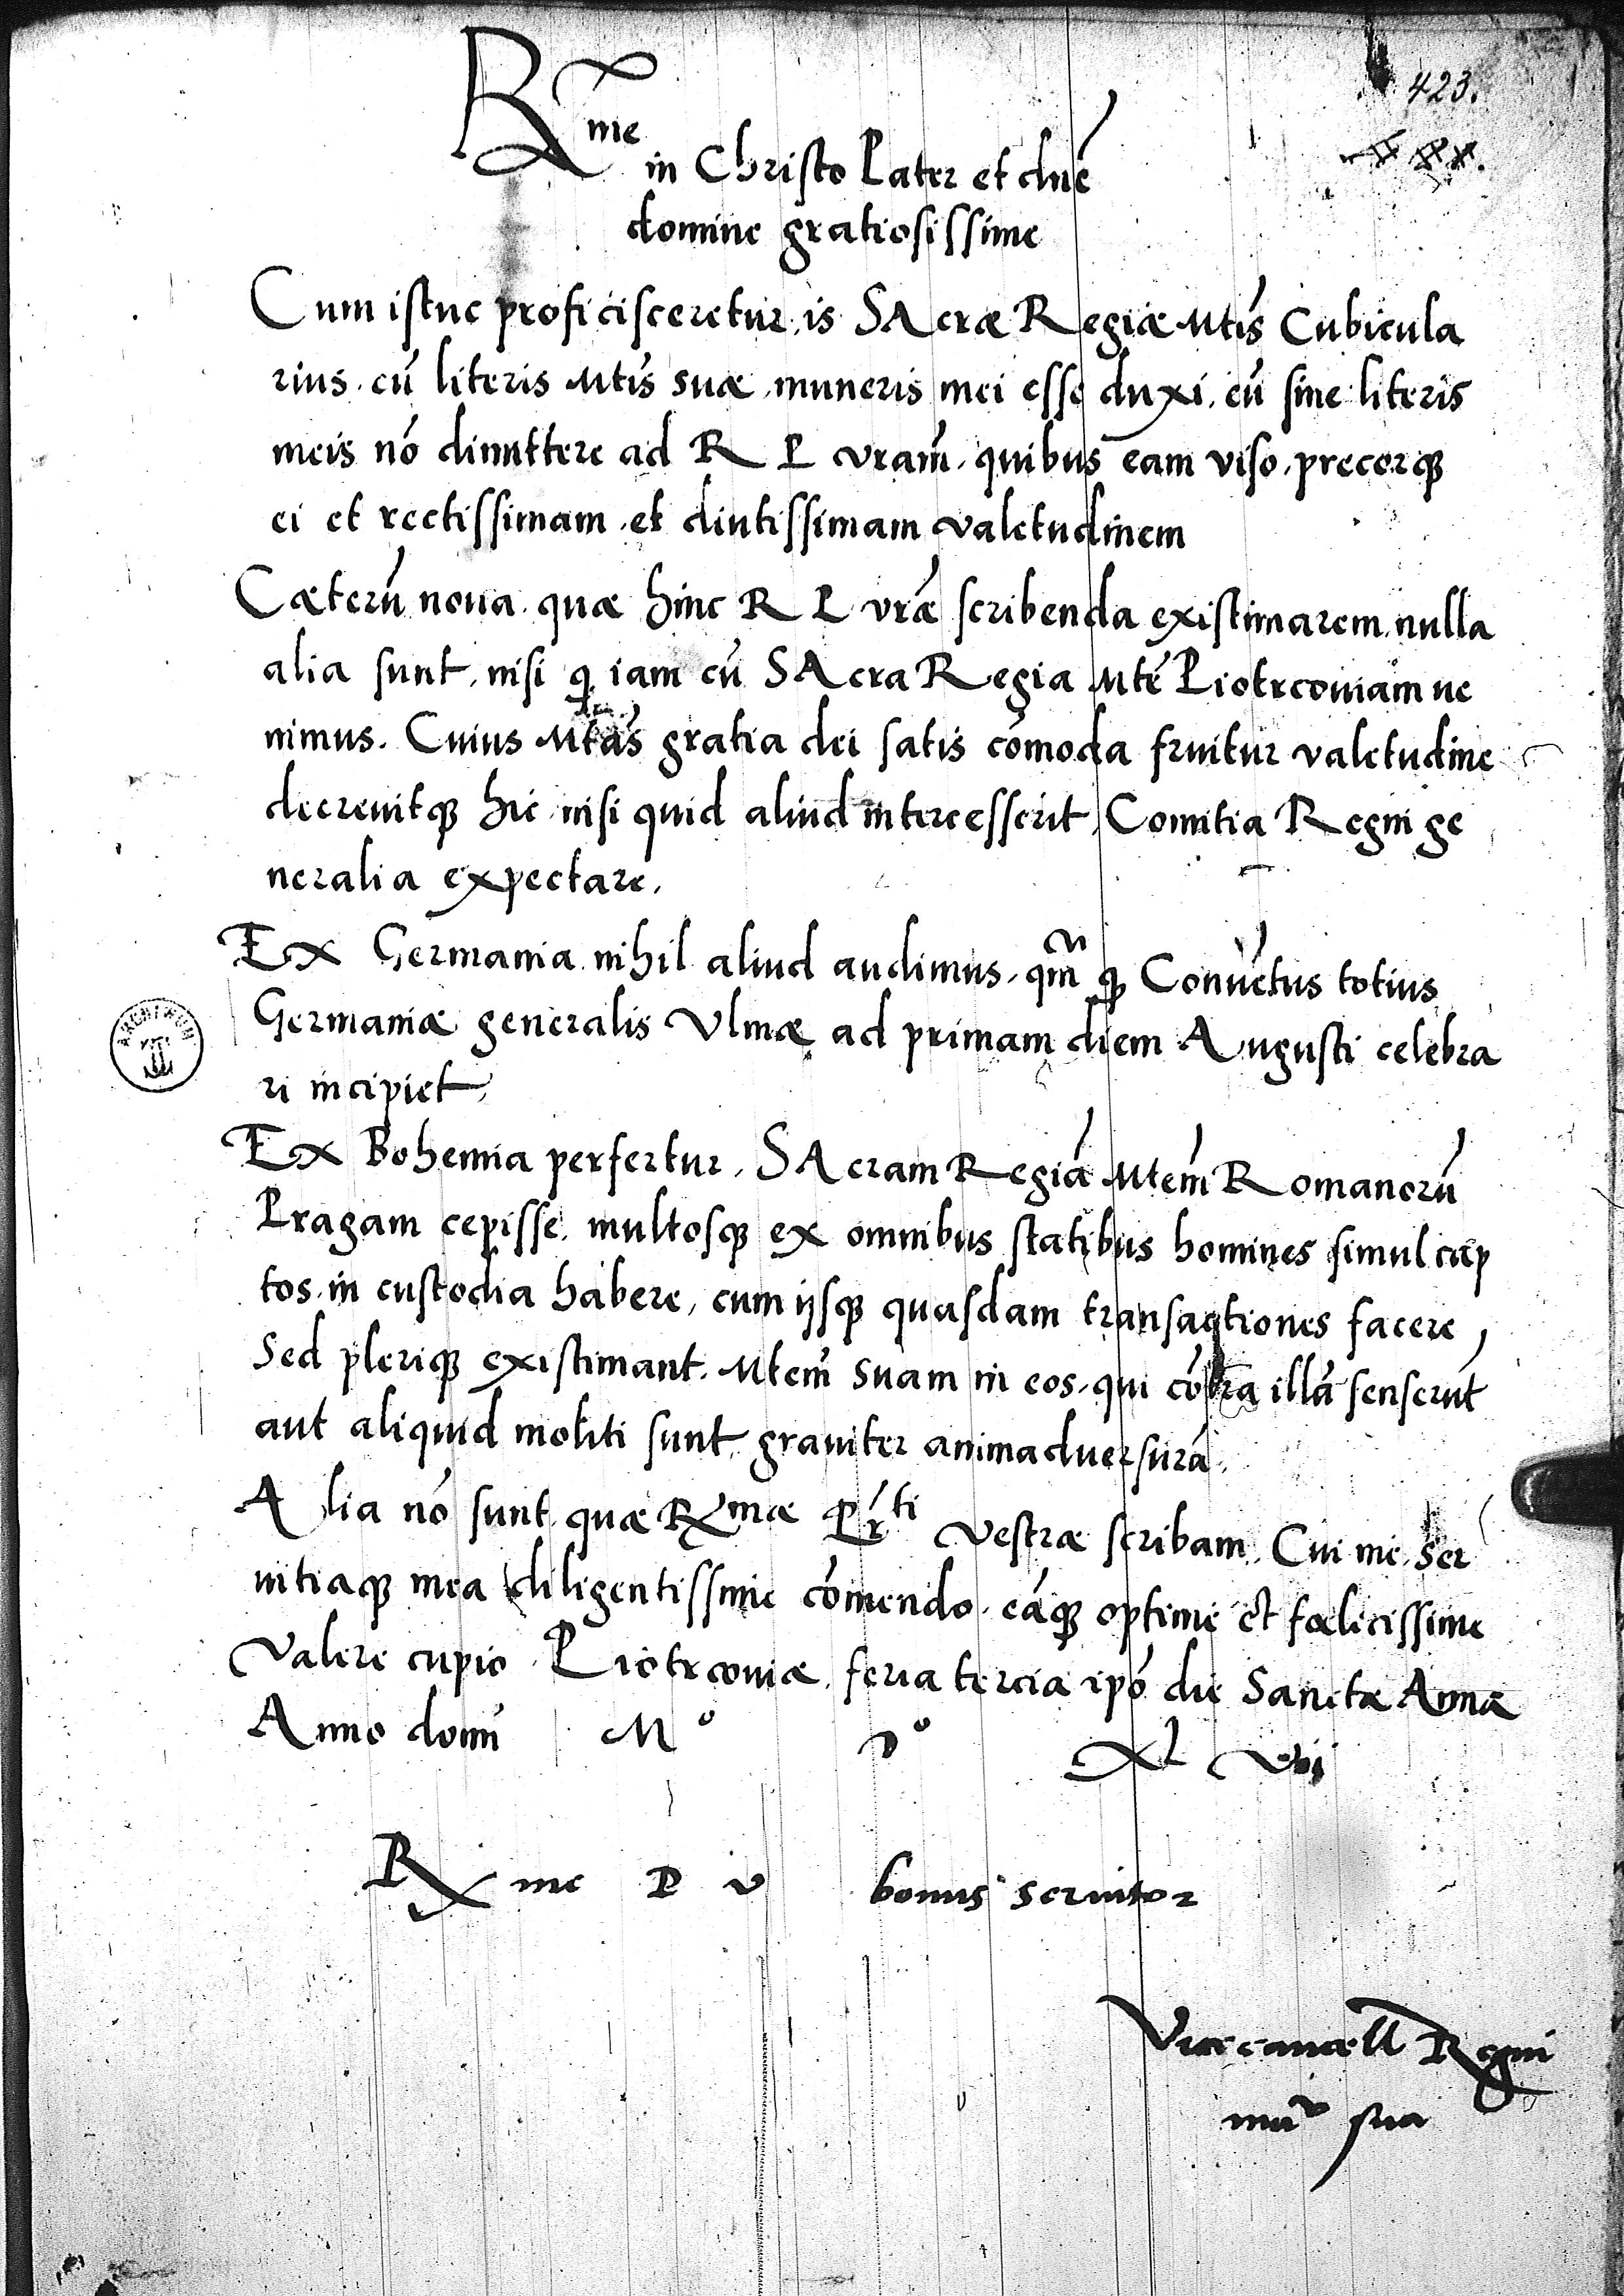 423.
Rme
in Christo Pater et dne
domine gratiosissime
Cum istuc proficisceretur, is SAcræ Regiæ Mtis Cubicula
rius, cū literis Mtis suæ, muneris mei esse duxi, eū sine literis
meis nō dimittere ad R P vram, quibus eam viso, precorq
ei et rectissimam, et diutissimam valetudinem
Cæterū noua, quæ hinc R P vræ scribenda existimarem, nulla
alia sunt, nisi q iam cū SAcra Regia Mte Piotrcouiam ve
nimus. Cuius Mtas gratia dei satis cōmoda fruitur valetudine
decreuitq hic, nisi quid aliud intercesserit, Comitia Regni ge
neralia expectare.
Ex Germania nihil aliud audimus, qm q Conuētus totius
Germaniæ generalis Vlmæ ad primam diem Augusti celebra
ri incipiet,
Ex Bohemia perfertur, SAcram Regiā Mtem Romanorū
Pragam cepisse, multosq ex omnibus statibus homines simul cap
tos, in custodia habere, cum ijsq quasdam transactiones facere,
Sed pleriq existimant, Mtem suam in eos, qui cōtra illā senserūt
aut aliquid moliti sunt, grauiter animaduersurā.
Alia nō sunt, quæ Rmæ Prti Vestræ scribam, Cui me, ser
uitiaq mea diligentissime cōmendo, eāq optime et fœlicissime
Valere cupio. Piotrcouiæ, feria tercia ipo die Sanctæ Annæ
Anno domī Mo Do XL vij
Rme P v bonus seruitor
Vicecancell Regni
mau sua
ARCHIWUM